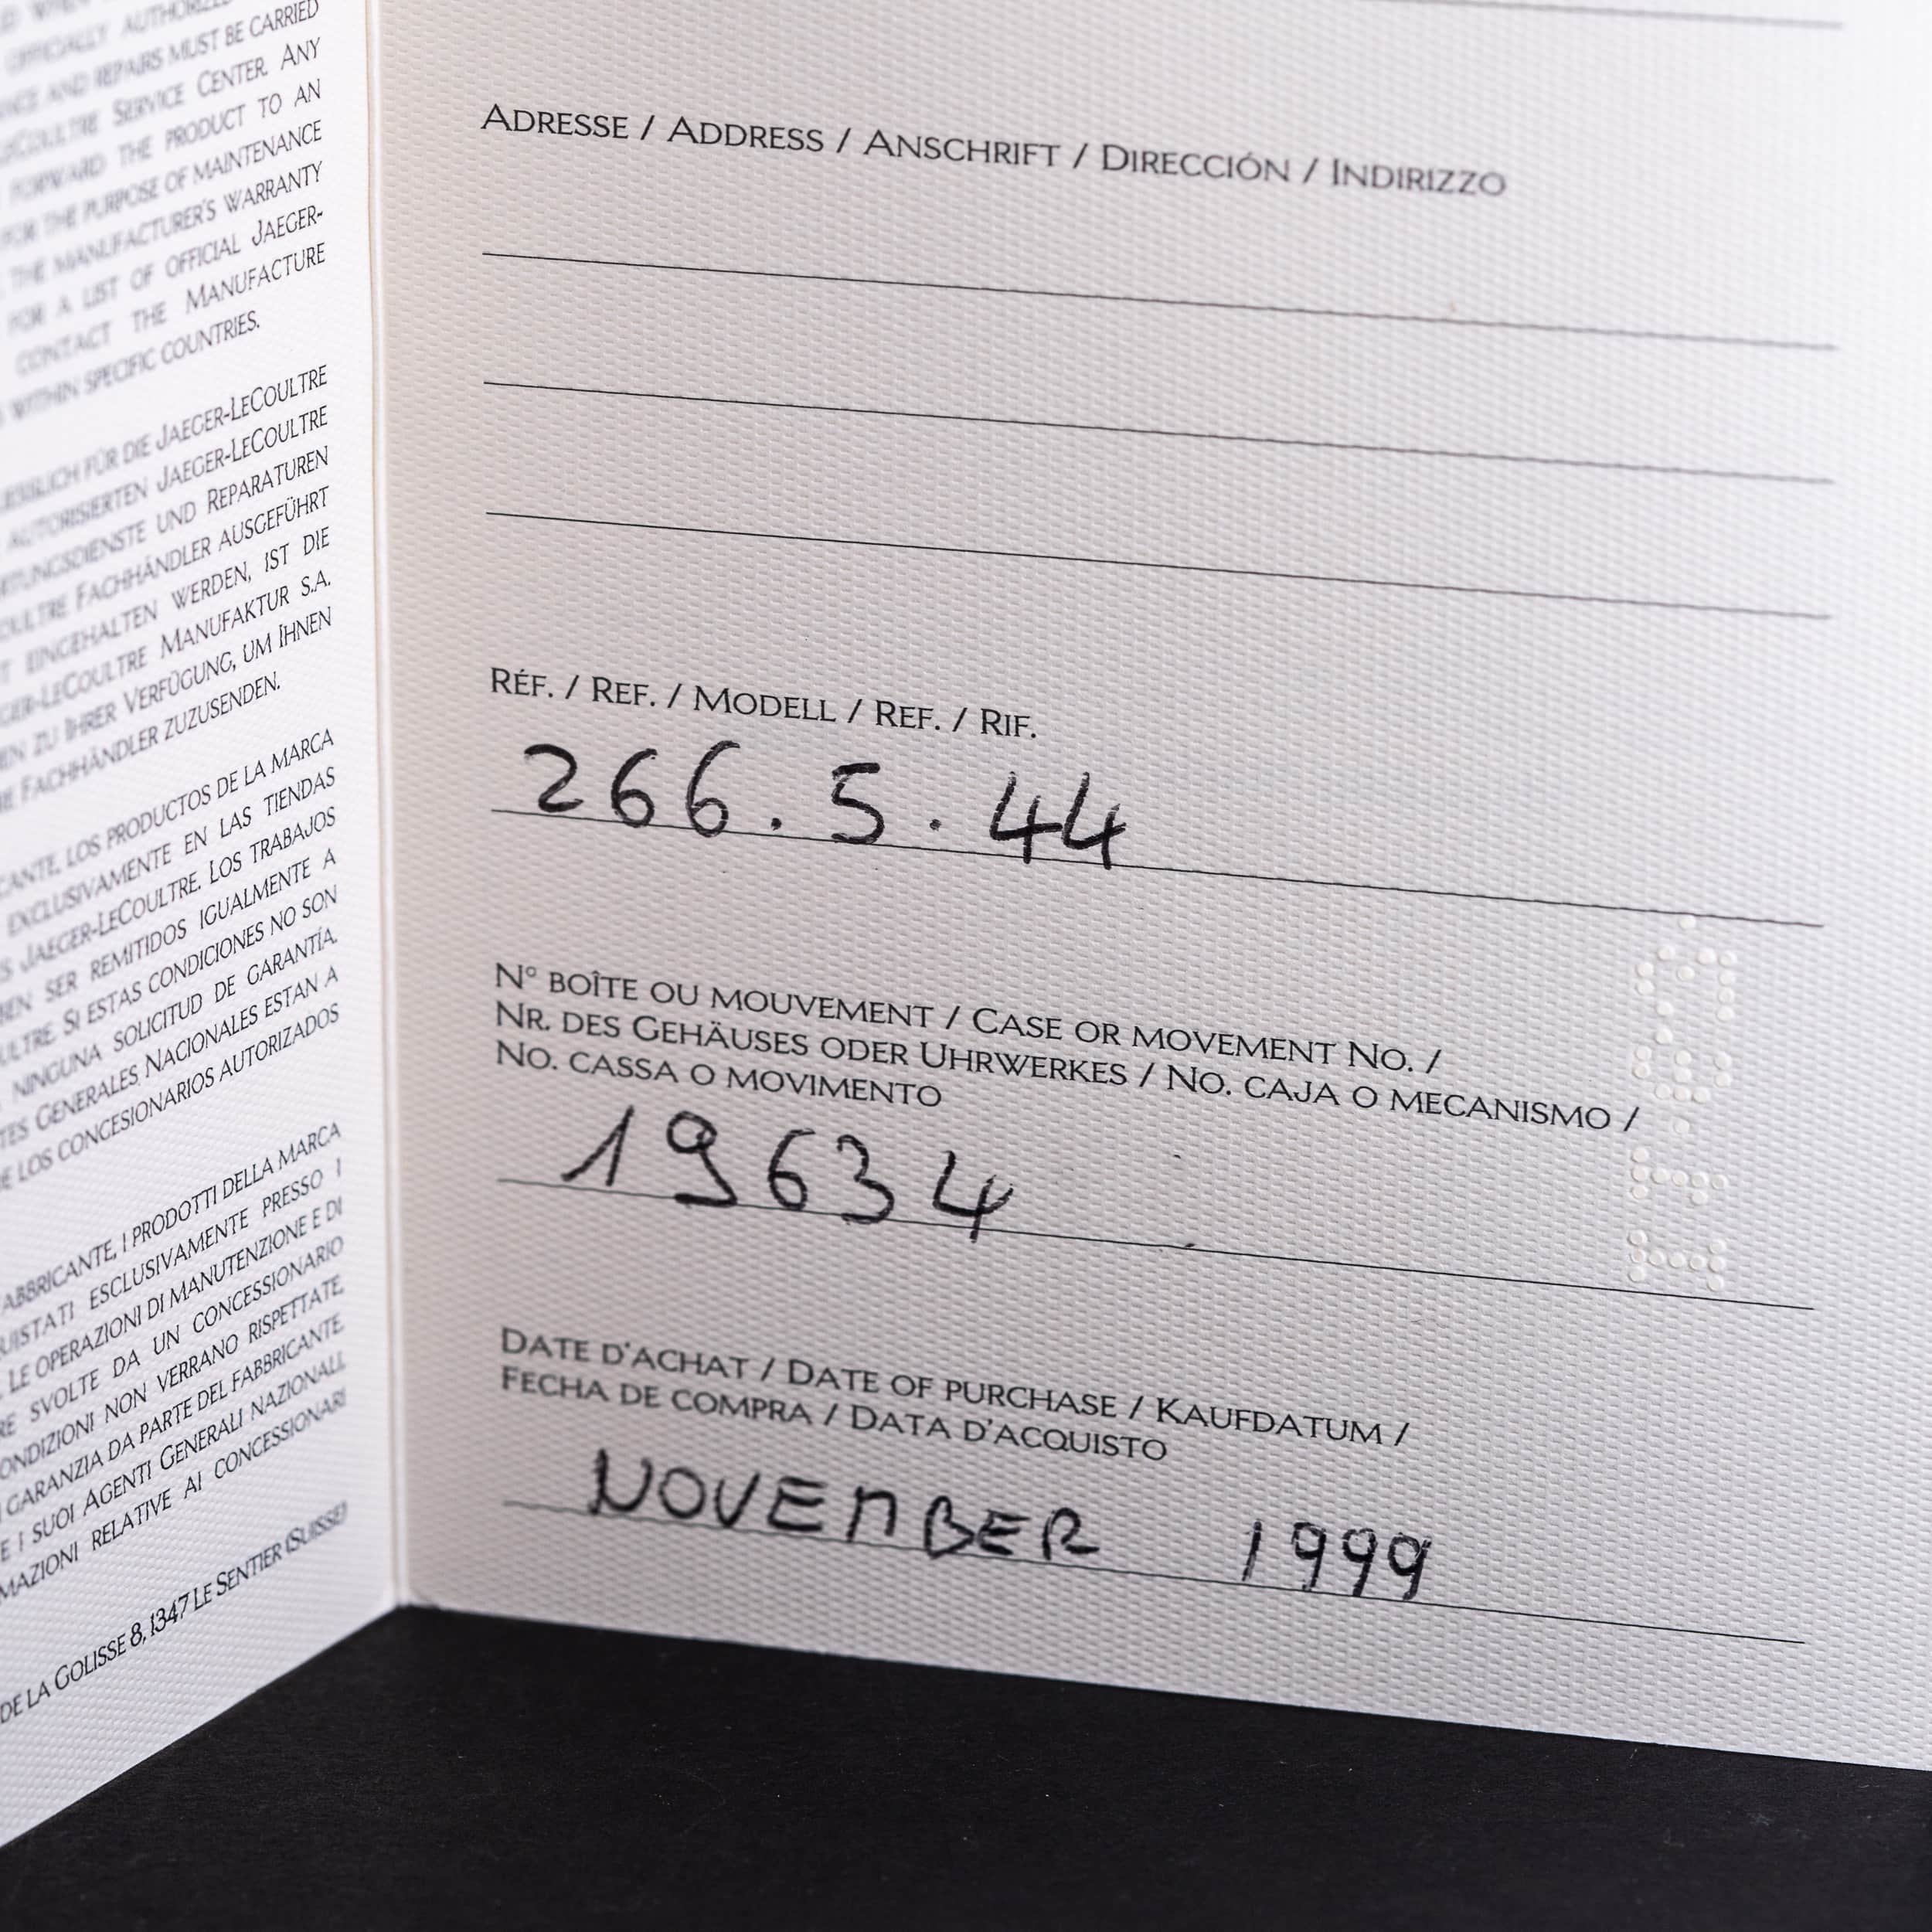 OFFICIALLY AUTHORIZED
AND REPAIRS MUST BE CARRIED
SERVICE CENTER. ANY
FORWARD THE PRODUCT TO AN
FOR THE PURPOSE OF MAINTENANCE
THE MANUFACTURER'S WARRANTY
FOR A LIST OF OFFICIAL JAEGER-
CONTACT THE MANUFACTURE
WITHIN SPECIFIC COUNTRIES.
FÜR DIE JAEGER-LECOULTRE
AUTORISIERTEN JAEGER-LECOULTRE
UND REPARATUREN
FACHHÄNDLER AUSGEFÜHRT
EINGEHALTEN WERDEN, IST DIE
MANUFAKTUR S.A.
ZU IHRER VERFÜGUNG, UM IHNEN
FACHHÄNDLER ZUZUSENDEN.
LOS PRODUCTOS DE LA MARCA
EXCLUSIVAMENTE EN LAS TIENDAS
JAEGER-LECOULTRE. LOS TRABAJOS
SER REMITIDOS IGUALMENTE A
SI ESTAS CONDICIONES NO SON
NINGUNA SOLICITUD DE GARANTÍA.
GENERALES NACIONALES ESTAN A
LOS CONCESIONARIOS AUTORIZADOS
I PRODOTTI DELLA MARCA
ESCLUSIVAMENTE PRESSO I
LE OPERAZIONI DI MANUTENZIONE E DI
SVOLTE DA UN CONCESSIONARIO
NON VERRANO RISPETTATE,
GARANZIA DA PARTE DEL FABBRICANTE.
E I SUOI AGENTI GENERALI NAZIONALI
RELATIVE AI CONCESSIONARI
DE LA GOLISSE 8, 1347 LE SENTIER (SUISSE)
ADRESSE / ADDRESS / ANSCHRIFT / DIRECCIÓN / INDIRIZZO
RÉF. / REF. / MODELL / REF. / RIF.
266.5.44
N° BOÎTE OU MOUVEMENT / CASE OR MOVEMENT NO. /
NR. DES GEHÄUSES ODER UHRWERKES / NO. CAJA O MECANISMO /
NO. CASSA O MOVIMENTO
19634
DATE D'ACHAT / DATE OF PURCHASE / KAUFDATUM /
FECHA DE COMPRA / DATA D'ACQUISTO
NOVEMBER 1999